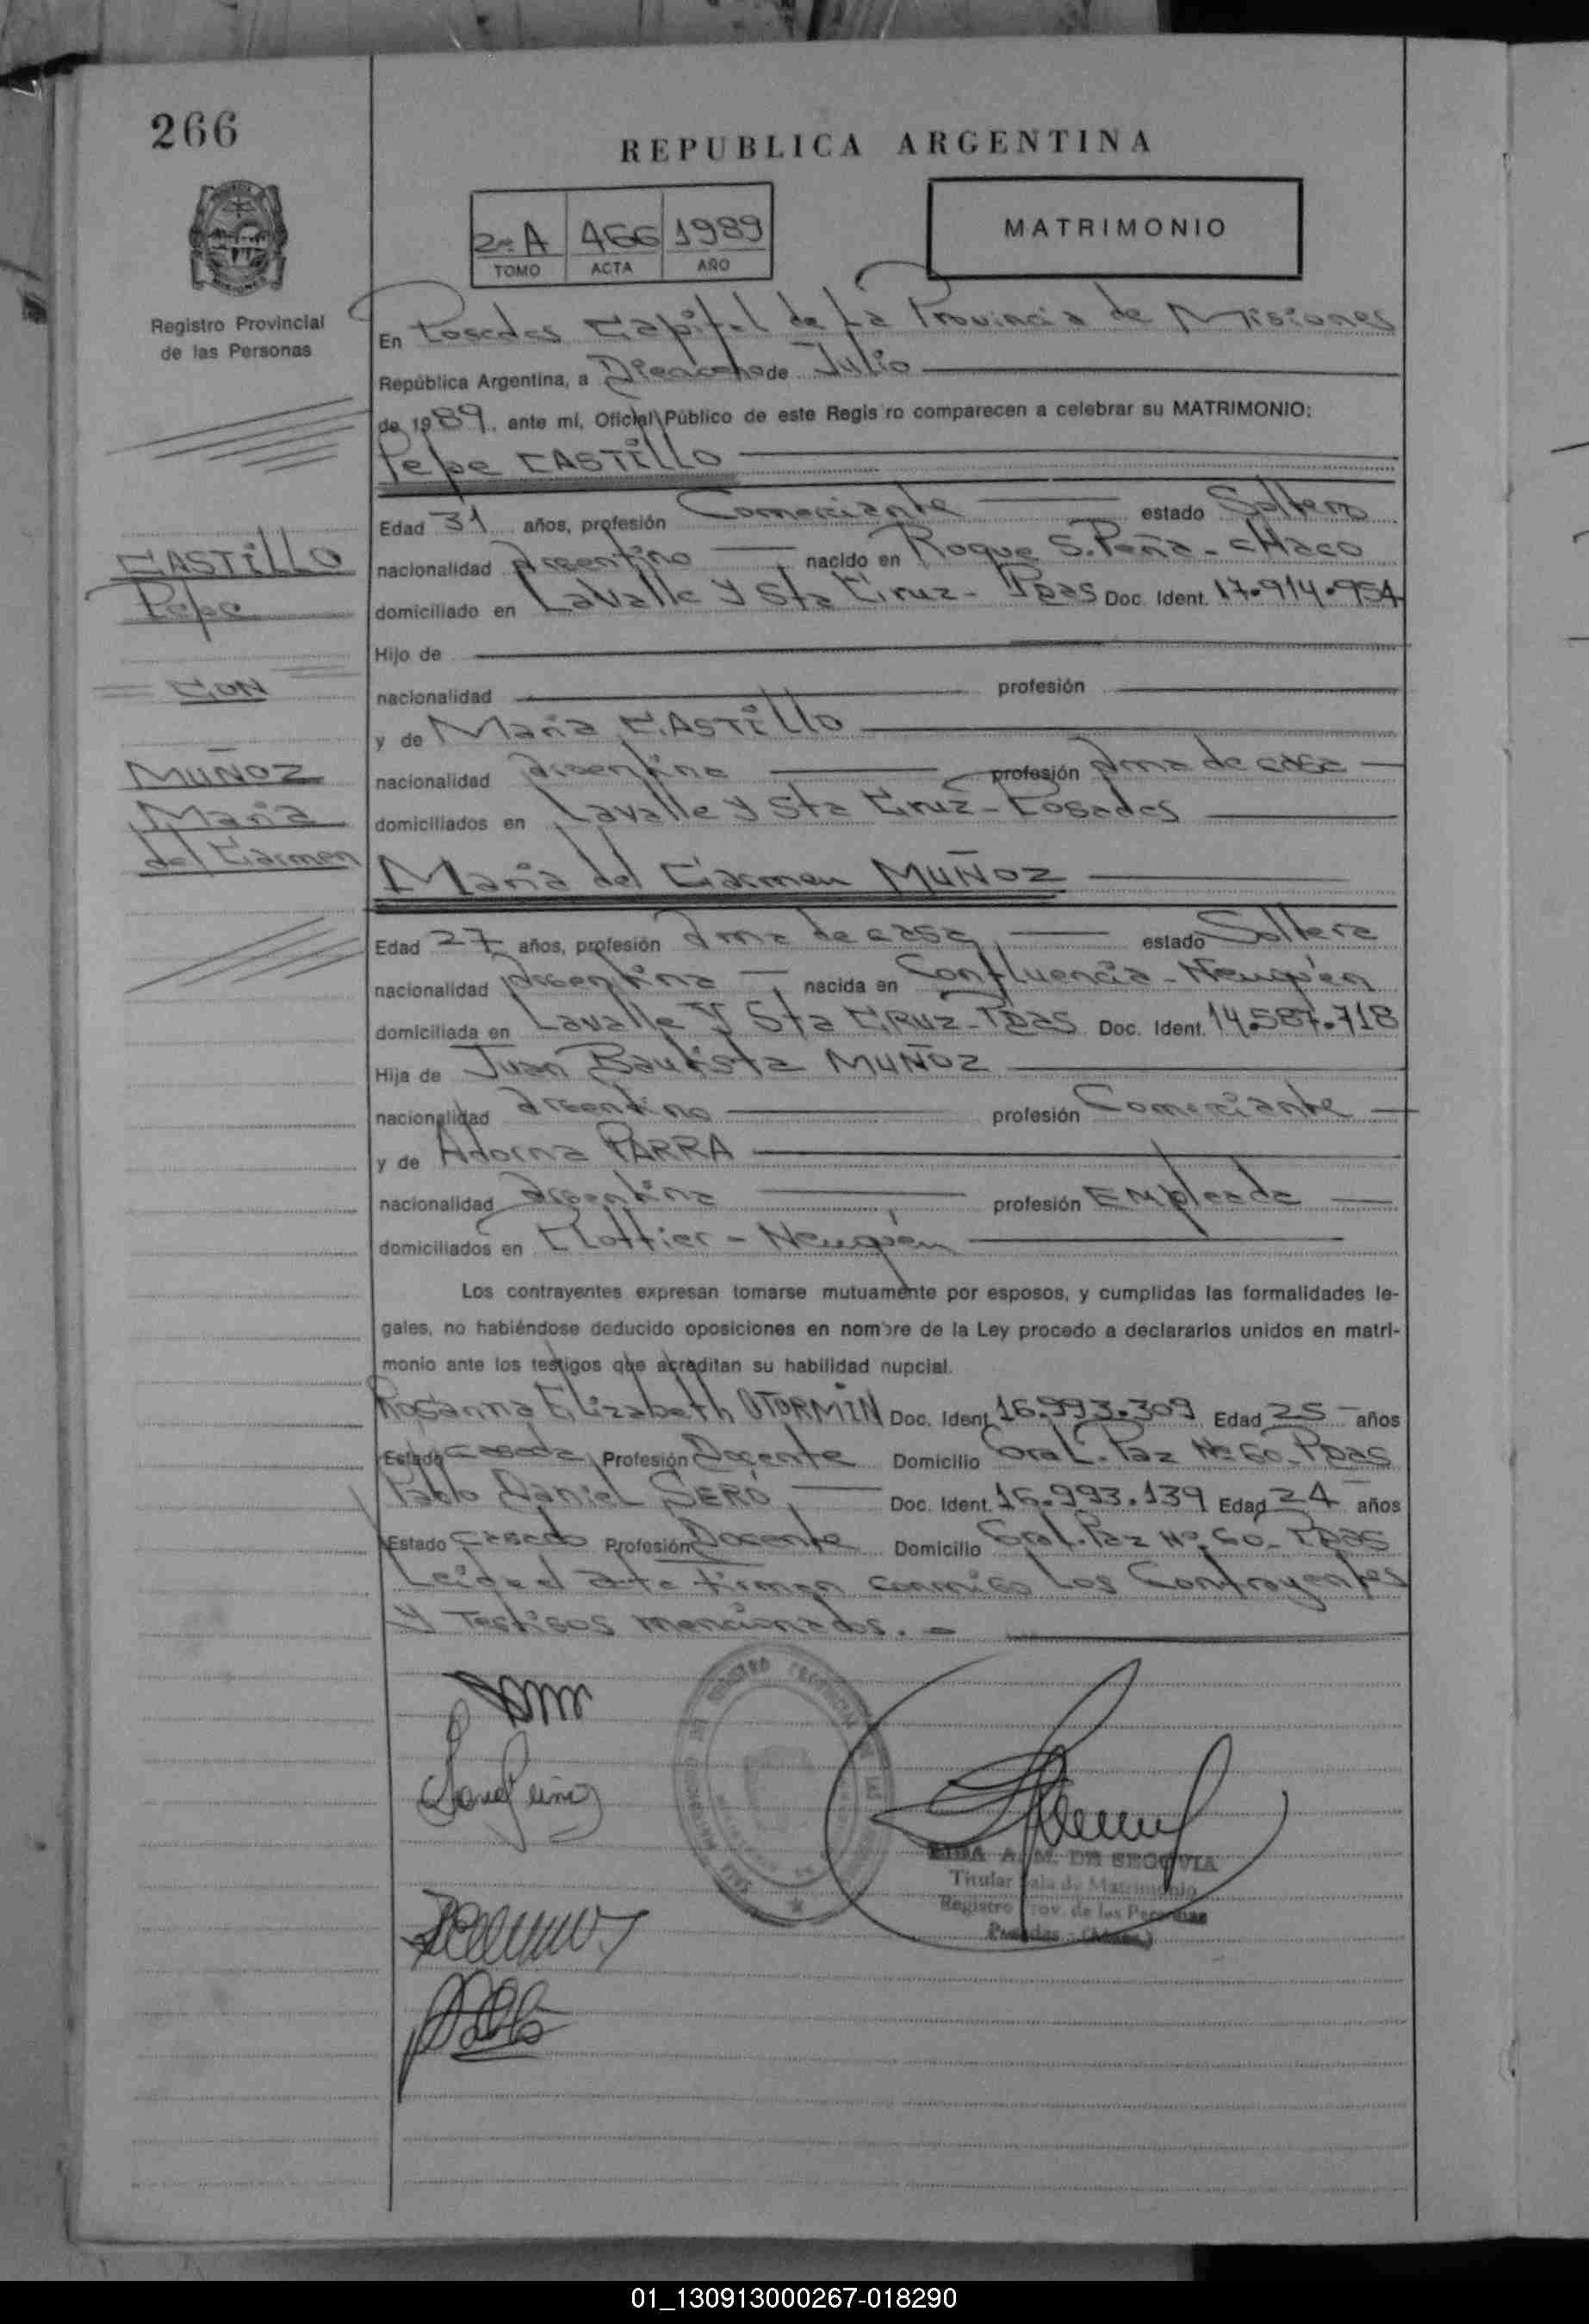 266
REPUBLICA ARGENTINA
2º A 466 1989
TOMO ACTA AÑO
MATRIMONIO
Registro Provincial
de las Personas
En Posadas Capital de La Provincia de Misiones
República Argentina, a Dieciocho de Julio
de 1989, ante mí, Oficial Público de este Regis ro comparecen a celebrar su MATRIMONIO:
Pepe CASTILLO
Edad 31 años, profesión Comerciante estado Soltero
nacionalidad Argentino nacido en Roque S. Peña - CHaco
domiciliado en Lavalle y Sta Cruz - Pdas Doc. Ident. 17.914.954
Hijo de
nacionalidad profesión
y de Maria CASTILLO
nacionalidad Argentina profesión Ama de casa
domiciliados en Lavalle y Sta Cruz - Posadas
CASTILLO
Pepe
CON
MUÑOZ
Maria
del Carmen
Maria del Carmen MUÑOZ
Edad 27 años, profesión Ama de casa estado Soltera
nacionalidad Argentina nacida en Confluencia - Neuquén
domiciliada en Lavalle y Sta CRuz - Pdas Doc. Ident. 14.587.718
Hija de Juan Bautista MUÑOZ
nacionalidad Argentino profesión Comerciante
y de Adorna PARRA
nacionalidad Argentina profesión EMpleada
domiciliados en Plottier - Neuquén
Los contrayentes expresan tomarse mutuamente por esposos, y cumplidas las formalidades le-
gales, no habiéndose deducido oposiciones en nombre de la Ley procedo a declararlos unidos en matri-
monio ante los testigos que acreditan su habilidad nupcial.
Rosanna Elizabeth OTORMIN Doc. Ident. 16.993.309 Edad 25 años
Estado Casada Profesión Docente Domicilio Gral. Paz Nº 60 - Pdas
Pablo Daniel SERÓ Doc. Ident. 16.993.139 Edad 24 años
Estado Casado Profesión Docente Domicilio Gral. Paz Nº 60 - Pdas
Leida el acta firman conmigo Los Contrayentes
y Testigos mencionados. -
A. M. DE SEGOVIA
Titular Sala de Matrimonio
Registro Prov. de las Personas
Posadas - (Mnes.)
01_130913000267-018290